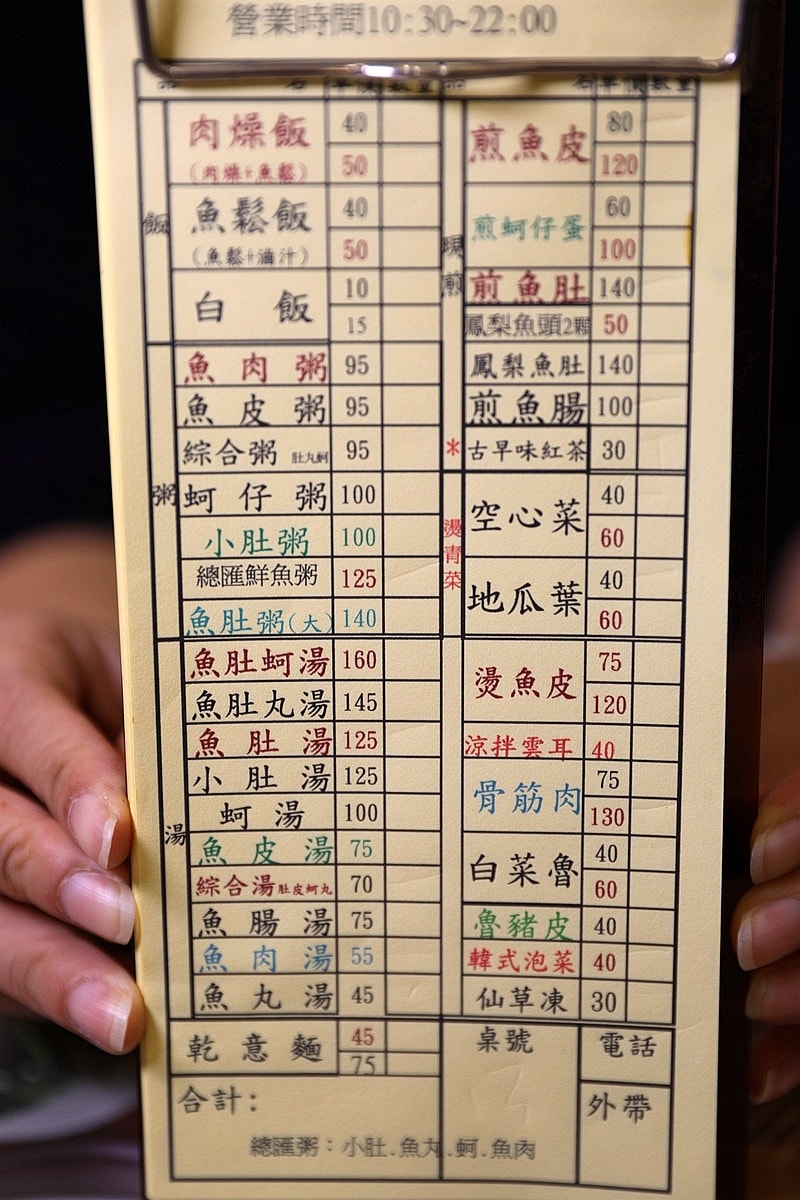 營業時間10:30~22:00
名 單價 數量
名 單價 數量
飯
肉燥飯 40
(肉燥+魚鬆) 50
魚鬆飯 40
(魚鬆+滷汁) 50
白飯 10
15
粥
魚肉粥 95
魚皮粥 95
綜合粥 肚丸蚵 95
蚵仔粥 100
小肚粥 100
總匯鮮魚粥 125
魚肚粥(大) 140
湯
魚肚蚵湯 160
魚肚丸湯 145
魚肚湯 125
小肚湯 125
蚵湯 100
魚皮湯 75
綜合湯肚皮蚵丸 70
魚腸湯 75
魚肉湯 55
魚丸湯 45
乾意麵 45
75
合計:
現煎
煎魚皮 80
120
煎蚵仔蛋 60
100
煎魚肚 140
鳳梨魚頭2顆 50
鳳梨魚肚 140
煎魚腸 100
* 古早味紅茶 30
燙青菜
空心菜 40
60
地瓜葉 40
60
燙魚皮 75
120
涼拌雲耳 40
骨筋肉 75
130
白菜魯 40
60
魯豬皮 40
韓式泡菜 40
仙草凍 30
桌號
電話
外帶
總匯粥:小肚.魚丸.蚵.魚肉